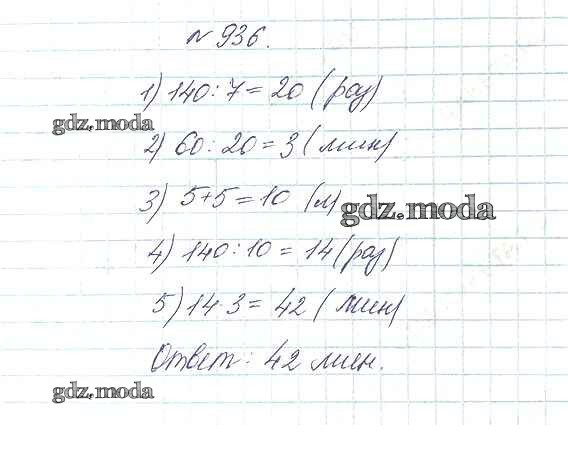 № 936.
1) 140 : 7 = 20 (раз)
gdz.moda
2) 60 : 20 = 3 (мин)
3) 5 + 5 = 10 (л)
gdz.moda
4) 140 : 10 = 14 (раз)
5) 14 · 3 = 42 (мин)
Ответ: 42 мин.
gdz.moda